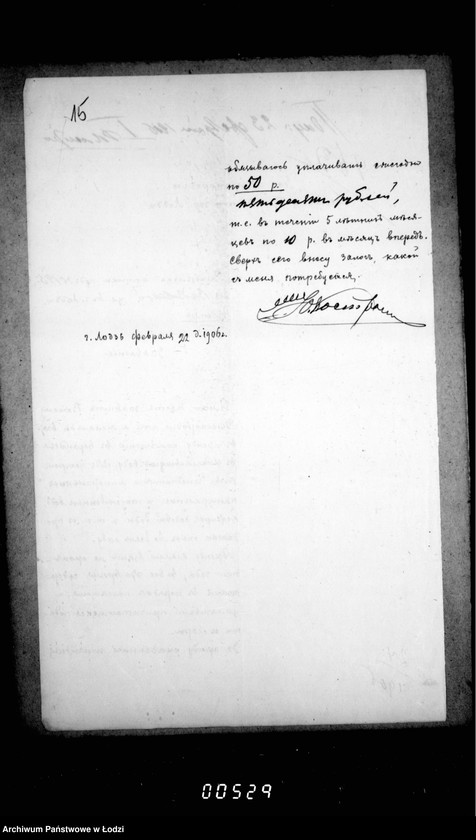 15
обязываюсь уплачивать ежегодно
по 50 р.
пятьдесят рублей,
т.е. въ теченіи 5 лѣтнихъ мѣся-
цевъ по 10 р. въ мѣсяцъ впередъ.
Сверхъ сего вношу залогъ, какой
съ меня потребуется.
г. Лодзь февраля 22 д. 1906 г.
000529
Archiwum Państwowe w Łodzi